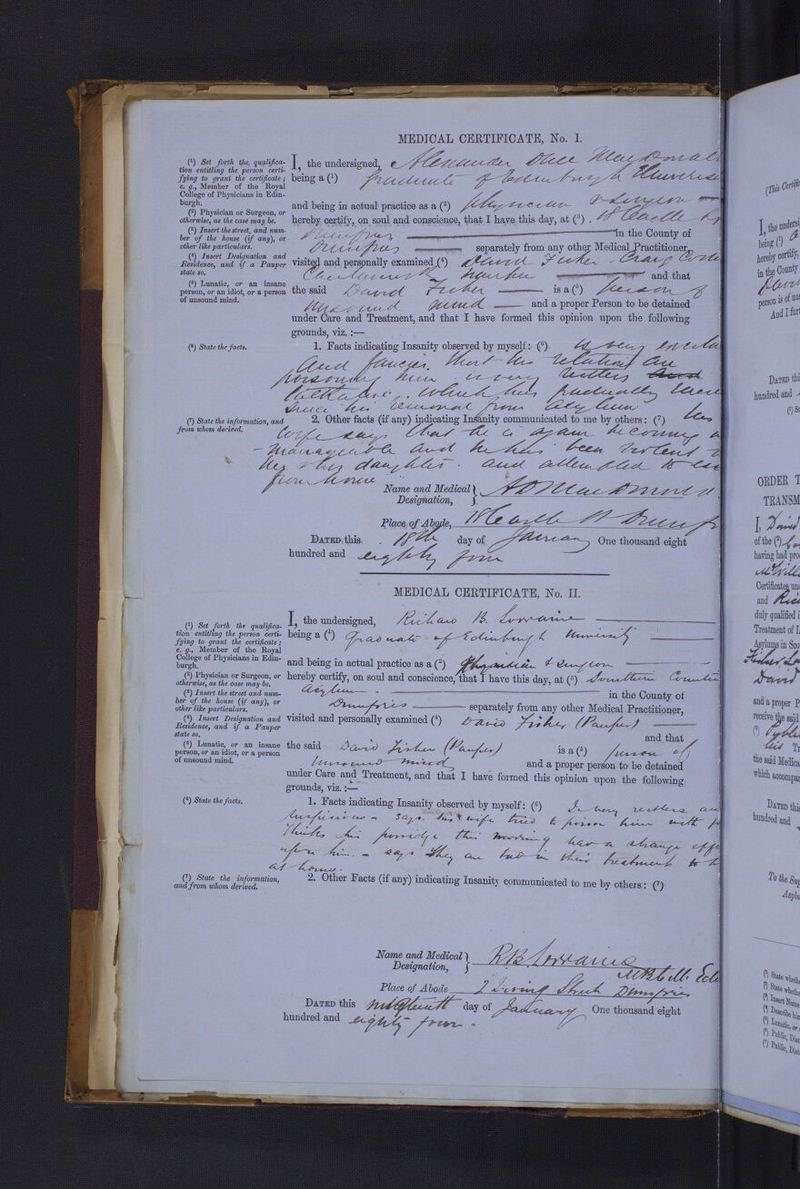 MEDICAL CERTIFICATE, No. I.
(¹) Set forth the qualifica-
tion entitling the person certi-
fying to grant the certificate;
e. g., Member of the Royal
College of Physicians in Edin-
burgh.
(²) Physician or Surgeon, or
otherwise, as the case may be.
(³) Insert the street, and num-
ber of the house (if any), or
other like particulars.
(⁴) Insert Designation and
Residence, and if a Pauper
state so.
(⁵) Lunatic, or an insane
person, or an idiot, or a person
of unsound mind.
I, the undersigned, Alexander Dale MacDonald
being a (¹) Graduate of Edinburgh Universi
and being in actual practice as a (²) physician & surgeon
hereby certify, on soul and conscience, that I have this day, at (³) 18 Castle St
Dumfries in the County of
Dumfries separately from any other Medical Practitioner,
visited and personally examined (⁴) David Fisher
and that
the said David Fisher is a (⁵) person of
unsound mind and a proper Person to be detained
under Care and Treatment, and that I have formed this opinion upon the following
grounds, viz. :—
(⁶) State the facts.
1. Facts indicating Insanity observed by myself: (⁶) Is very excita
and fancies that his relations are
poisoning him is very
talkative, which has gradually
since his removal from asylum
(⁷) State the information, and
from whom derived.
2. Other facts (if any) indicating Insanity communicated to me by others: (⁷) His
wife says that he is again becoming
manageable and he has been violent
her & his daughter and attempted to
from home
Name and Medical Designation, A D MacDonald
Place of Abode, 18 Castle St Dumf
DATED this 18th day of January One thousand eight
hundred and eighty four
MEDICAL CERTIFICATE, No. II.
(¹) Set forth the qualifica-
tion entitling the person certi-
fying to grant the certificate;
e. g., Member of the Royal
College of Physicians in Edin-
burgh.
(²) Physician or Surgeon, or
otherwise, as the case may be.
(³) Insert the street and num-
ber of the house (if any), or
other like particulars.
(⁴) Insert Designation and
Residence, and if a Pauper
state so.
(⁵) Lunatic, or an insane
person, or an idiot, or a person
of unsound mind.
I, the undersigned, Richard B. Lorraine
being a (¹) Graduate of Edinburgh University
and being in actual practice as a (²) Physician & Surgeon
hereby certify, on soul and conscience, that I have this day, at (³) Southern Counties
Asylum in the County of
Dumfries separately from any other Medical Practitioner,
visited and personally examined (⁴) David Fisher (Pauper)
and that
the said David Fisher (Pauper) is a (⁵) person of
unsound mind and a proper person to be detained
under Care and Treatment, and that I have formed this opinion upon the following
grounds, viz. :—
(⁶) State the facts.
1. Facts indicating Insanity observed by myself: (⁶) Is very restless and
suspicious - says his wife tried to poison him with
Thinks his porridge this morning has a strange effe
upon him. - says they are bad in their treatment to h
at home.
(⁷) State the information,
and from whom derived.
2. Other Facts (if any) indicating Insanity communicated to me by others: (⁷)
Name and Medical Designation, R B Lorraine
M.B. & C.M. Edi
Place of Abode 2 Irving Street Dumfries
DATED this nineteenth day of January One thousand eight
hundred and eighty four.
(This Certific
I, the undersi
being (¹)
hereby certify,
in the County
person is of un
And I furt
DATED thi
hundred and
ORDER T
TRANSM
I, David
of the (²)
having had pro
Certificates un
and
duly qualified
Treatment of L
Asylums in Sco
David
and a proper P
receive the said
the said Medica
which accompa
DATED this
hundred and
To the Sup
Asylu
(¹) State wheth
(²) State wheth
(³) Insert Name
(⁴) Describe him
(⁵) Lunatic, or
(⁶) Public, Dist
(⁷) Public, Dist